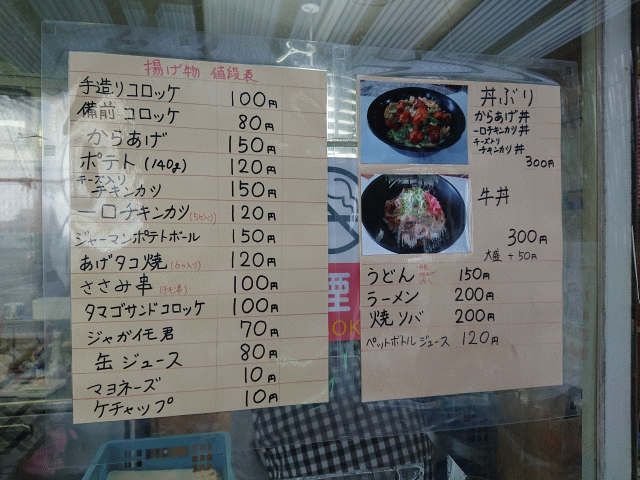 揚げ物 値段表
手造りコロッケ 100円
備前コロッケ 80円
からあげ 150円
ポテト(140g) 120円
チーズ入り
チキンカツ 150円
一口チキンカツ(5ケ入り) 120円
ジャーマンポテトボール 150円
あげタコ焼(6ケ入り) 120円
ささみ串 100円
タマゴサンドコロッケ 100円
ジャガイモ君 70円
缶ジュース 80円
マヨネーズ 10円
ケチャップ 10円
丼ぶり
からあげ丼
一口チキンカツ丼
チーズ入り
チキンカツ丼
300円
牛丼
300円
大盛 +50円
うどん 150円
ラーメン 200円
焼ソバ 200円
ペットボトルジュース 120円
煙
OK